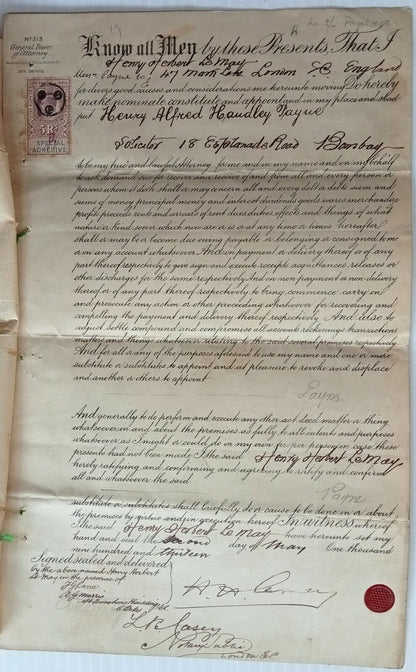 No 313
General Power
of Attorney
Know all Men by these Presents, That I
Henry Herbert Le May
47 Mark Lane London E.C. England
for divers good causes and considerations me hereunto moving Do hereby
make nominate constitute and appoint and in my place and stead
put Henry Alfred Haudley Payne
5 Rs
SPECIAL
ADHESIVE
Solicitor 18 Esplanade Road Bombay
to be my true and lawful Attorney for me and in my name and on my behalf
to ask demand sue for recover and receive of and from all and every person or
persons whom it doth shall or may concern all and every debt or debts sum and
sums of money principal money and interest dividends goods wares merchandize
profit proceeds rents and arrears of rent dues duties effects and things of what
nature or kind soever which now are or is or at any time or times hereafter
shall or may be or become due owing payable or belonging or consigned to me
or on any account whatsoever And on payment or delivery thereof or of any
part thereof respectively to give sign and execute receipts acquittances releases or
other discharges for the same respectively And on non payment or non delivery
thereof or of any part thereof respectively to bring commence carry on
and prosecute any action or other proceeding whatsoever for recovering and
compelling the payment and delivery thereof respectively And also to
adjust settle compound and compromise all accounts reckonings transactions
matters and things whatsoever relating to the said several premises respectively
And for all or any of the purposes aforesaid to use my name and one or more
substitute or substitutes to appoint and at pleasure to revoke and displace
and another or others to appoint
Payne
And generally to do perform and execute any other act deed matter or thing
whatsoever in and about the premises as fully to all intents and purposes
whatsoever as I might or could do in my own proper person in case these
presents had not been made I the said Henry Herbert Le May
hereby ratifying and confirming and agreeing to ratify and confirm
all and whatsoever the said
Payne
substitute or substitutes shall lawfully do or cause to be done in or about
the premises by virtue and in execution hereof In witness whereof
I the said Henry Herbert Le May have hereunto set my
hand and seal the second day of May One thousand
nine hundred and thirteen
Signed sealed and delivered
by the above named Henry Herbert
Le May in the presence of
Notary Public
London E.C.